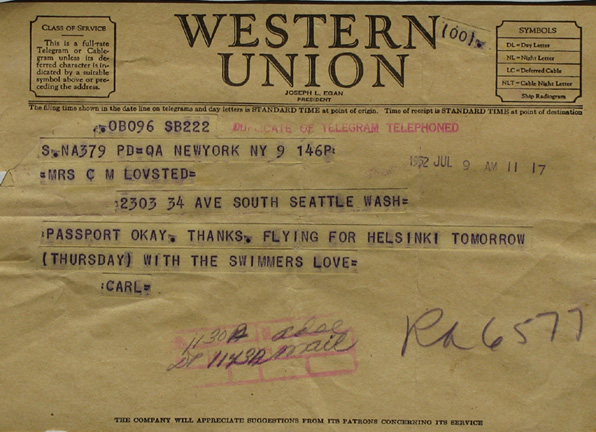 CLASS OF SERVICE
This is a full-rate
Telegram or Cable-
gram unless its de-
ferred character is in-
dicated by a suitable
symbol above or pre-
ceding the address.
WESTERN
UNION
JOSEPH L. EGAN
PRESIDENT
(1001)
SYMBOLS
DL=Day Letter
NL=Night Letter
LC=Deferred Cable
NLT=Cable Night Letter
Ship Radiogram
The filing time shown in the date line on telegrams and day letters is STANDARD TIME at point of origin. Time of receipt is STANDARD TIME at point of destination
.OB096 SB222 DUPLICATE OF TELEGRAM TELEPHONED
S.NA379 PD=QA NEWYORK NY 9 146P=
1952 JUL 9 AM 11 17
=MRS C M LOVSTED=
2303 34 AVE SOUTH SEATTLE WASH=
:PASSPORT OKAY. THANKS. FLYING FOR HELSINKI TOMORROW
(THURSDAY) WITH THE SWIMMERS LOVE=
:CARL=
1130A
1143A mail
Ra 6577
THE COMPANY WILL APPRECIATE SUGGESTIONS FROM ITS PATRONS CONCERNING ITS SERVICE